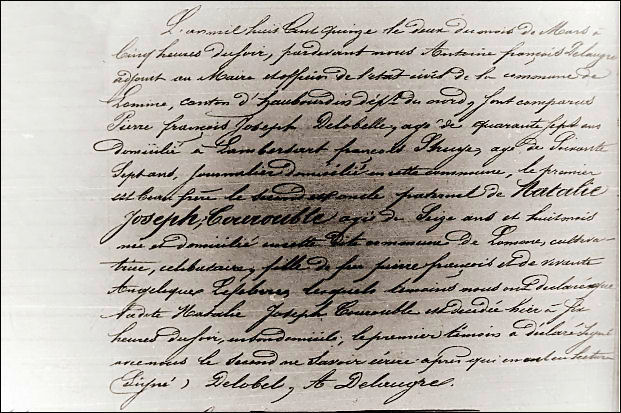 L'an mil huit cent quinze le deux du mois de Mars à
Cinq heures du soir, pardevant nous Antoine françois Delaugre
adjoint au Maire et officier de l'état civil de la commune de
Lomme, canton d'haubourdin dépt. du nord, sont comparus
Pierre françois Joseph Delobelle, agé de quarante sept ans
domicilié à Lambersart françois agé de soixante
Sept ans, journalier domicilié en cette commune, le premier
est beau frère le second est oncle paternel de Natalie
Joseph Courouble agée de Seize ans et huit mois
née et domiciliée en cette dite commune de Lomme, cultiva-
trice, célibataire, fille de feu pierre françois et de vivante
Angelique Lefebvre, lesquels temoins nous ont déclaré que
ladite Natalie Joseph Courouble est decedée hier à Six
heures du soir, en son domicile, le premier témoin a déclaré signé
avec nous le second ne savoir écrire après qui en ont eu lecture
(Signé) Delobel, A Delaugre.